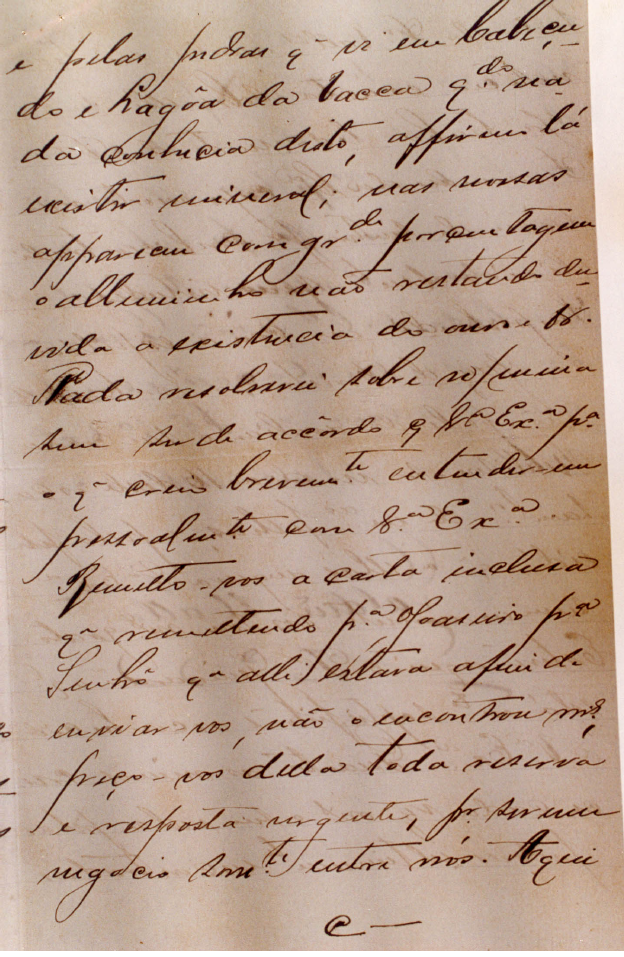 e pelas pedras q~ vi em Cabeçu-
do e Lagôa da Vacca q.do na-
da conhecia disto, affirem lá
existir mineral; nas nossas
apparecem com gr.de porcentagem
o alluminho não restando du-
vida a existencia de ouro e
Nada resolverei sobre
sem ser de accôrdo V.a Ex.a p.a
o q~ creio brevem.te entender-me
pessoalm.te com V.a Ex.a
Remetto-vos a carta inclusa
q~ remettendo p.a Joaseiro p.a
Senhô q~ alli estava afim de
enviar-vos, não o encontrou mais,
peço-vos della toda reserva
e resposta urgente, pr. ser um
negocio som.te entre nós. Aqui
c —